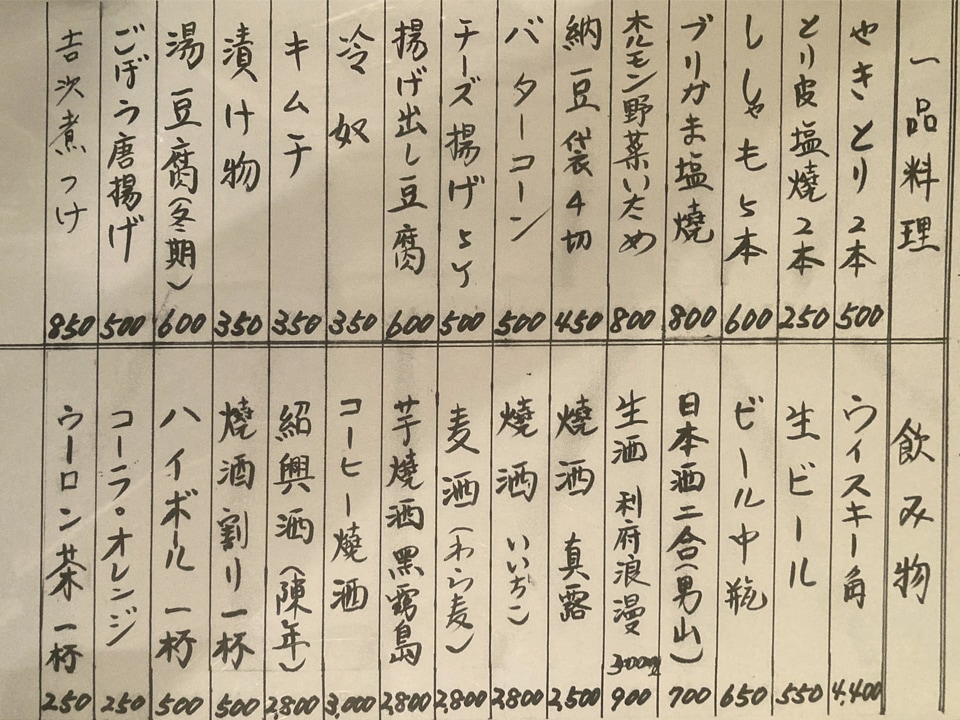 一品料理
やきとり2本 500
とり皮塩焼2本 250
ししゃも5本 600
ブリカま塩焼 800
ホルモン野菜いため 800
納豆袋4切 450
バターコーン 500
チーズ揚げ5ケ 500
揚げ出し豆腐 600
冷奴 350
キムチ 350
漬け物 350
湯豆腐(冬期) 600
ごぼう唐揚げ 500
吉次煮つけ 850
飲み物
ウイスキー角 4,400
生ビール 550
ビール中瓶 650
日本酒二合(男山) 700
生酒 利府浪漫 300ml 900
焼酒 真露 2,500
焼酒 いいちこ 2,800
麦酒(わら麦) 2,800
芋焼酒黒霧島 2,800
コーヒー焼酒 3,000
紹興酒(陳年) 2,800
焼酒割り一杯 500
ハイボール 一杯 500
コーラ。オレンジ 250
ウーロン茶 一杯 250